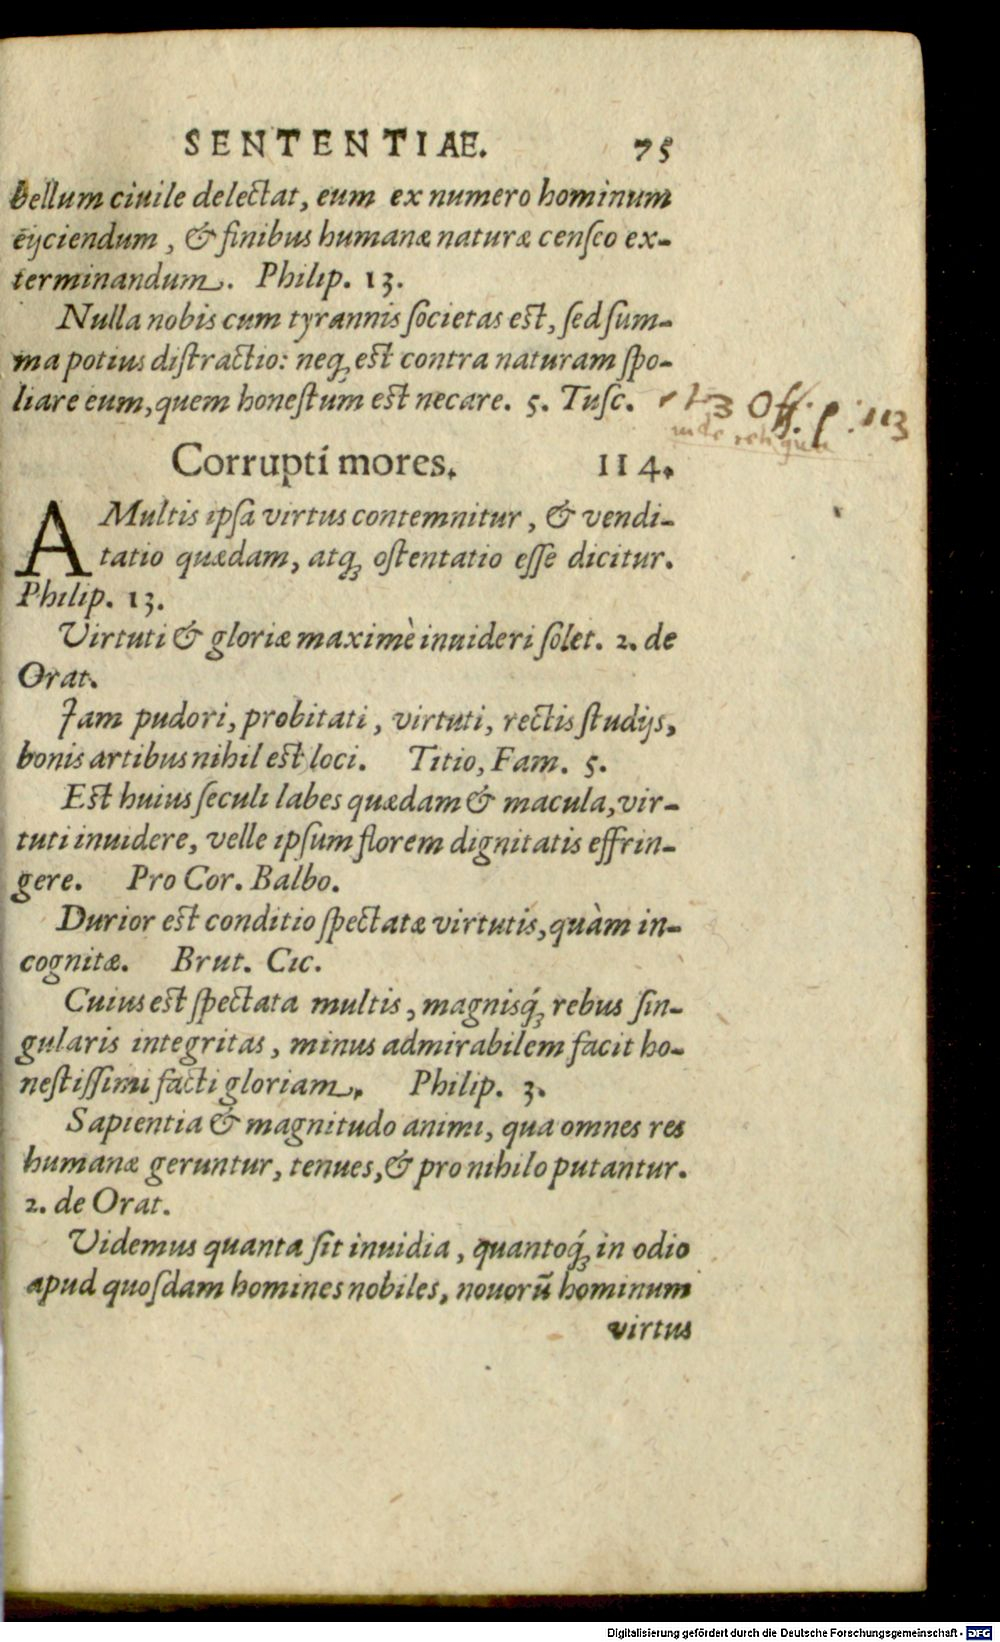 SENTENTIAE. 75
bellum ciuile delectat, eum ex numero hominum
eijciendum, & finibus humanæ naturæ cenſeo ex-
terminandum. Philip. 13.
Nulla nobis cum tyrannis ſocietas eſt, ſed ſum-
ma potius diſtractio: neq; eſt contra naturam ſpo-
liare eum, quem honeſtum eſt necare. 5. Tuſc.
3 Off. p. 113
Corrupti mores. 114.
A Multis ipſa virtus contemnitur, & vendi-
tatio quædam, atq; oſtentatio eſſe dicitur.
Philip. 13.
Virtuti & gloriæ maximè inuideri ſolet. 2. de
Orat.
Jam pudori, probitati, virtuti, rectis ſtudijs,
bonis artibus nihil eſt loci. Titio, Fam. 5.
Eſt huius ſeculi labes quædam & macula, vir-
tuti inuidere, velle ipſum florem dignitatis effrin-
gere. Pro Cor. Balbo.
Durior eſt conditio ſpectatæ virtutis, quàm in-
cognitæ. Brut. Cic.
Cuius eſt ſpectata multis, magnisq́; rebus ſin-
gularis integritas, minus admirabilem facit ho-
neſtiſſimi facti gloriam. Philip. 3.
Sapientia & magnitudo animi, qua omnes res
humanæ geruntur, tenues, & pro nihilo putantur.
2. de Orat.
Videmus quanta ſit inuidia, quantoq́; in odio
apud quoſdam homines nobiles, nouorũ hominum
virtus
Digitalisierung gefördert durch die Deutsche Forschungsgemeinschaft - DFG